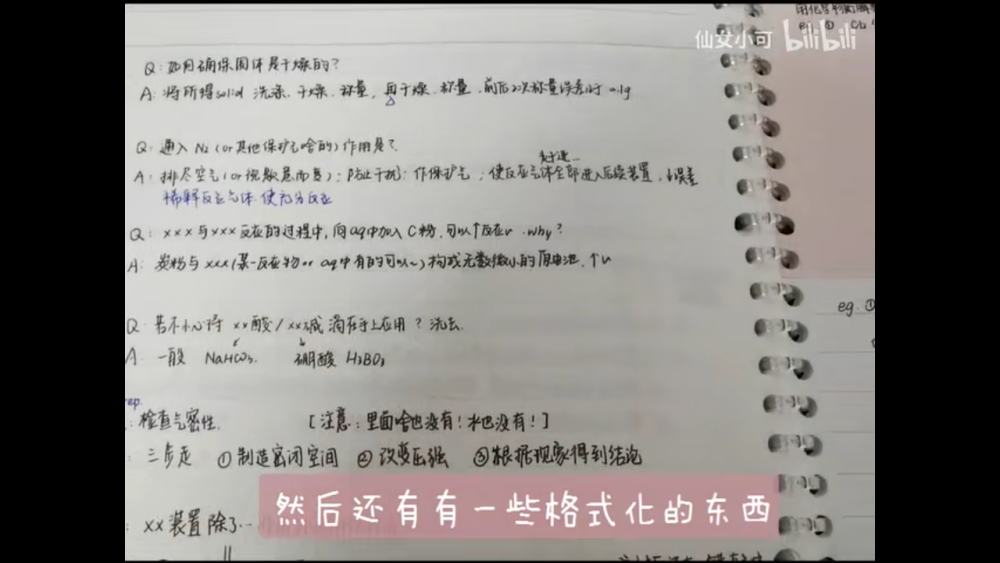 仙女小可 bilibili
Q：如何确保固体是干燥的？
A：将所得solid 洗涤、干燥、称量，再干燥、称量，前后2次称量误差小于 0.1g
Q：通入 N₂（or其他保护气啥的）作用是？
A：排尽空气（or视数意而悬）；防止干扰；作保护气；使反应气体全部进入后续装置，↓误差
稀释反应气体 使充分反应
Q：×××与×××反应的过程中，向aq中加入C粉，可以↑反应v．why？
A：炭粉与×××（某一反应物or aq中有的可以~）构成无数微小的原电池，↑v
Q 若不小心将 ××酸/××碱 滴在手上应用？洗去．
A．一般 NaHCO₃. 硼酸 H₃BO₃
检查气密性． [注意：里面啥也没有！水也没有！]
三步走 ①制造密闭空间 ②改变压强 ③根据现象得到结论
然后还有有一些格式化的东西
××装置除了…
eg.①